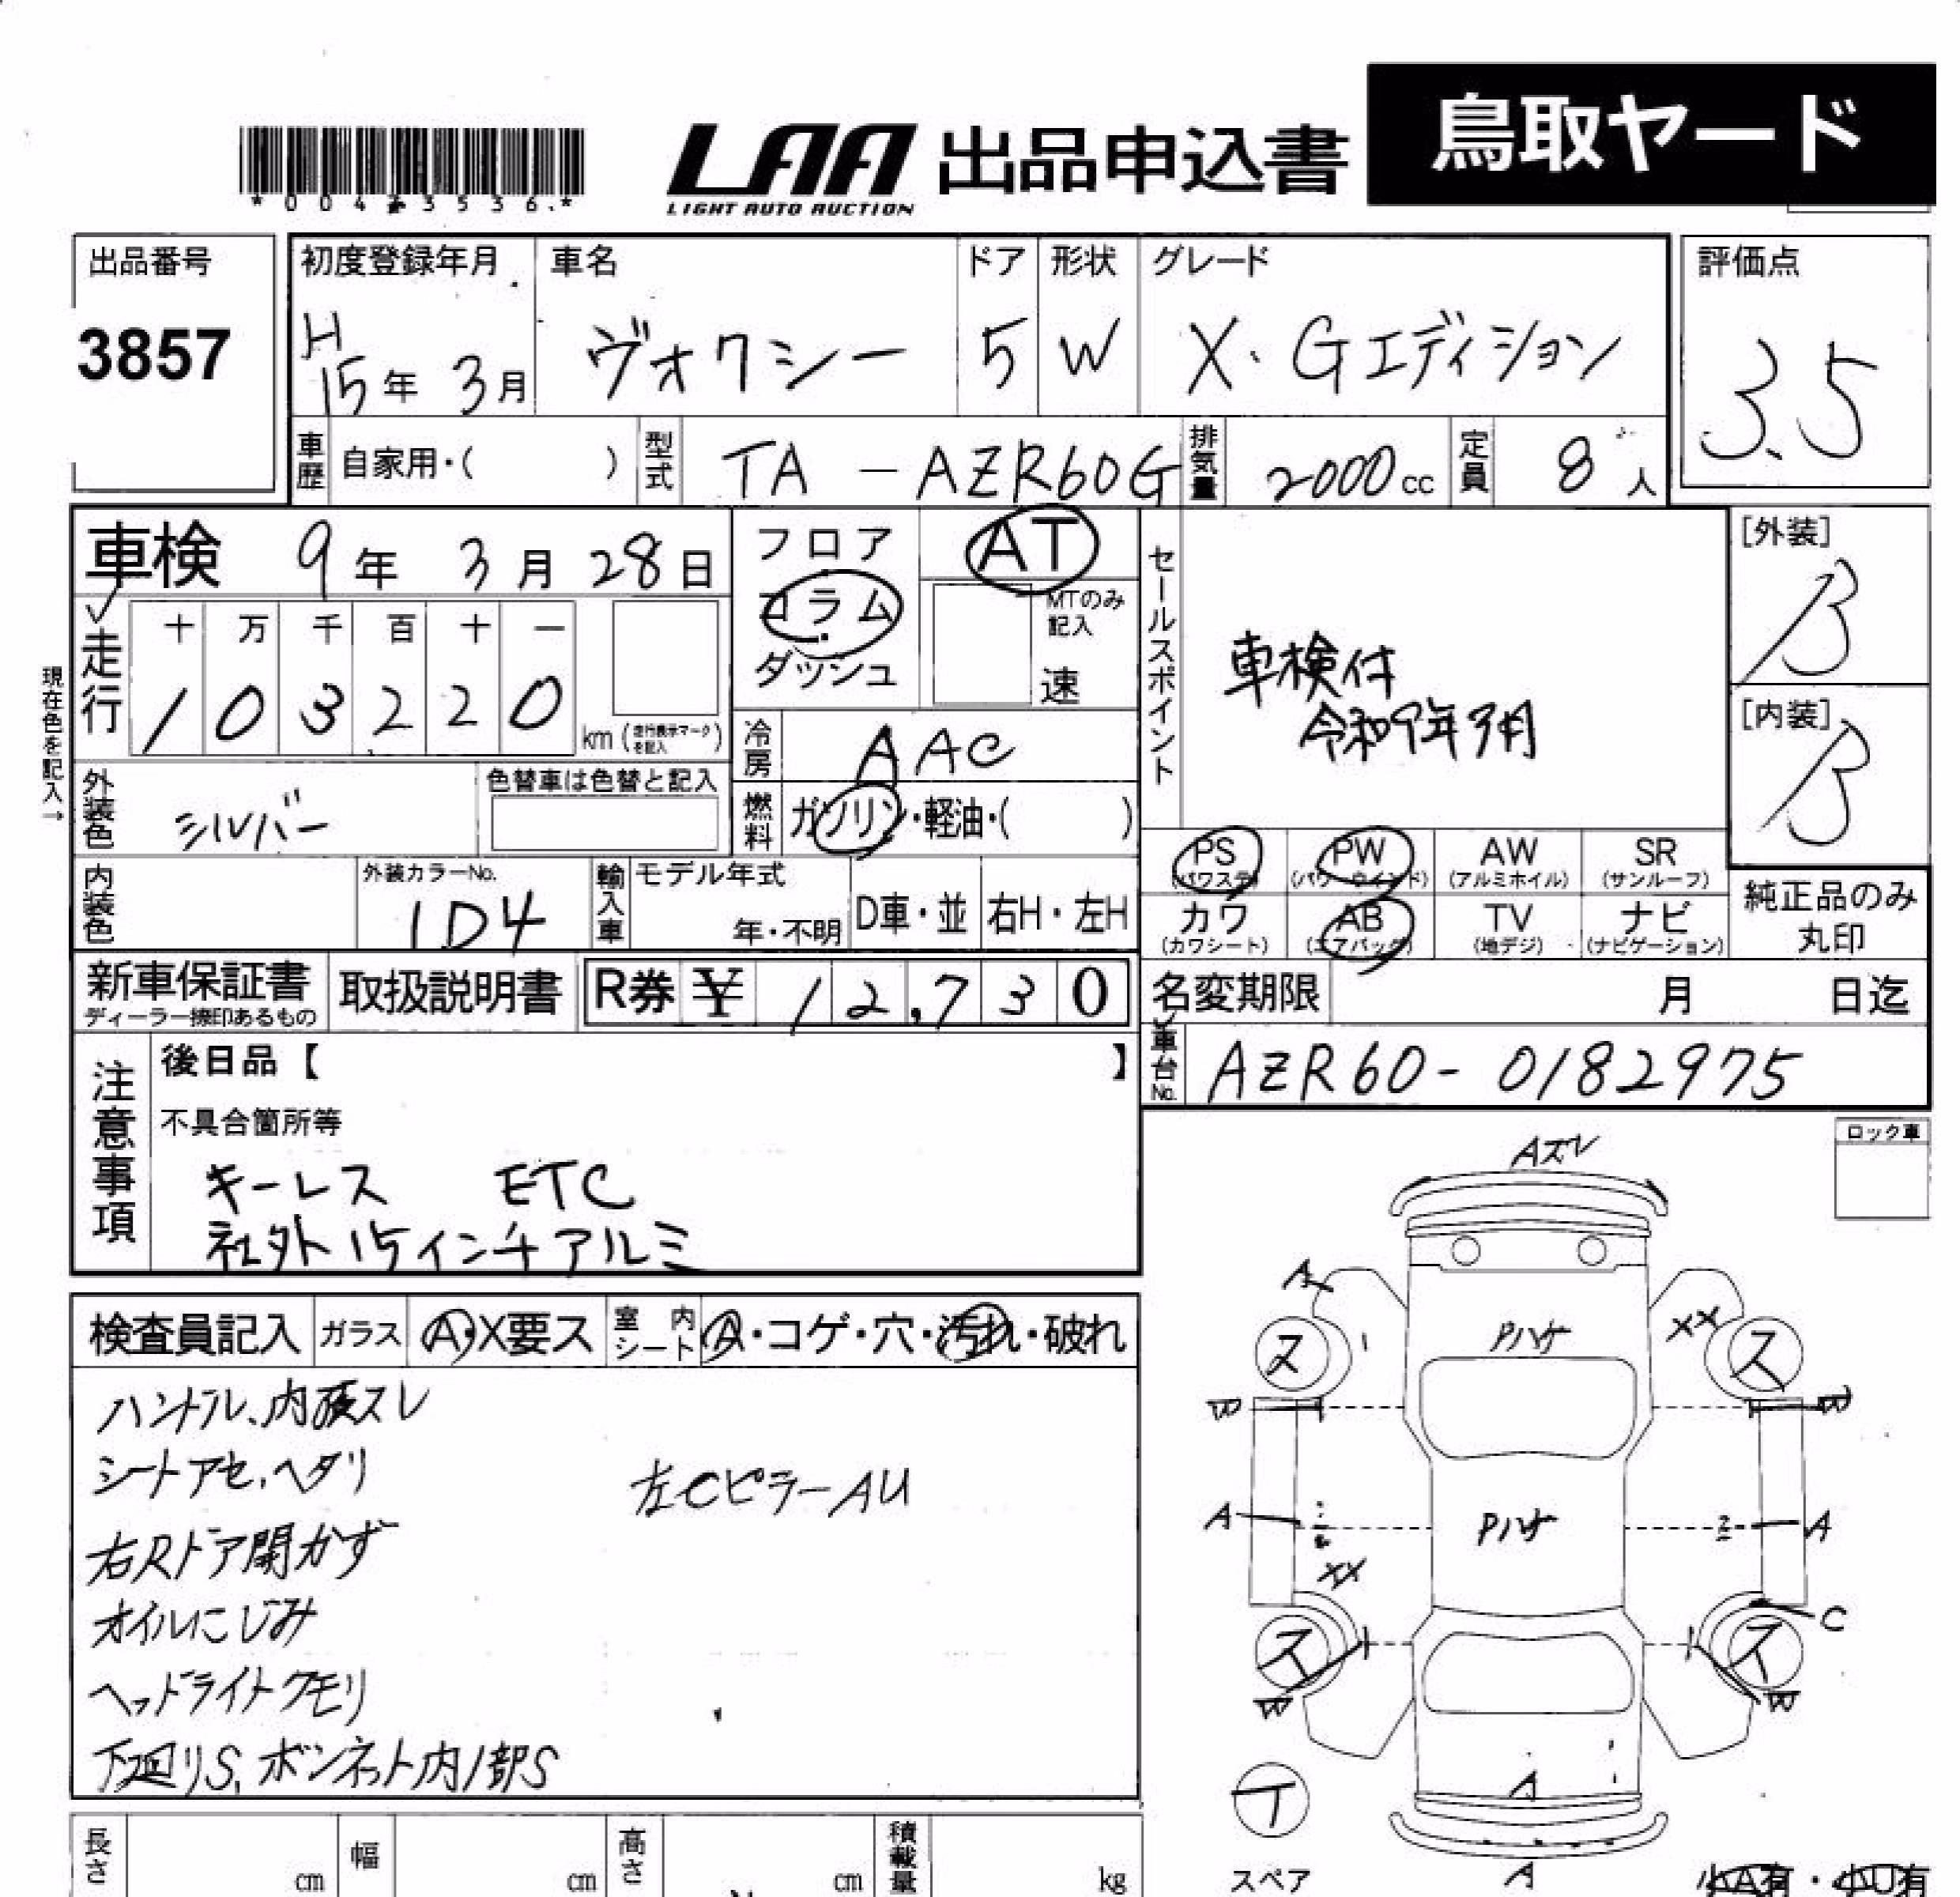 鳥取ヤード
LAA 出品申込書
LIGHT AUTO AUCTION
出品番号
3857
初度登録年月
H
15年 3月
車名
ヴォクシー
ドア
5
形状
W
グレード
X・Gエディション
評価点
3.5
車歴 自家用・( )
型式 TA-AZR60G
排気量 2000cc
定員 8人
車検 9年 3月 28日
現在色を記入→
走行
十 万 千 百 十 一
1 0 3 2 2 0
km (走行表示マークを記入)
フロア
コラム
ダッシュ
AT
MTのみ記入
速
冷房 AAC
燃料 ガソリン・軽油・( )
セールスポイント
車検付
令和9年3月
[外装]
B
[内装]
B
外装色 シルバー
色替車は色替と記入
内装色
外装カラーNo.
1D4
輸入車
モデル年式
年・不明
D車・並
右H・左H
PS (パワステ)
PW (パワーウインド)
AW (アルミホイル)
SR (サンルーフ)
カワ (カワシート)
AB (エアバッグ)
TV (地デジ)
ナビ (ナビゲーション)
純正品のみ
丸印
新車保証書
ディーラー捺印あるもの
取扱説明書
R券 ¥ 12,730
名変期限 月 日迄
車台No. AZR60-0182975
注意事項
後日品【 】
不具合箇所等
キーレス ETC
社外15インチアルミ
ロック車
検査員記入
ガラス A・X要ス
室内シート A・コゲ・穴・汚れ・破れ
ハンドル、内張スレ
シートアセ、ヘタリ
左CピラーAU
右Rドア開かず
オイルにじみ
ヘッドライトクモリ
下廻りS、ボンネット内1部S
Aズレ
A
Pハゲ
XX
ス
ス
W
W
A
Pハゲ
A
XX
C
ス
ス
W
W
A
T
スペア
A
小A有・小U有
長さ cm
幅 cm
高さ cm
積載量 kg